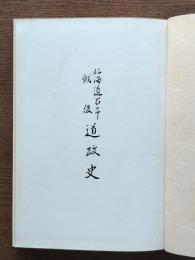 北海道百年
戦後 道政史